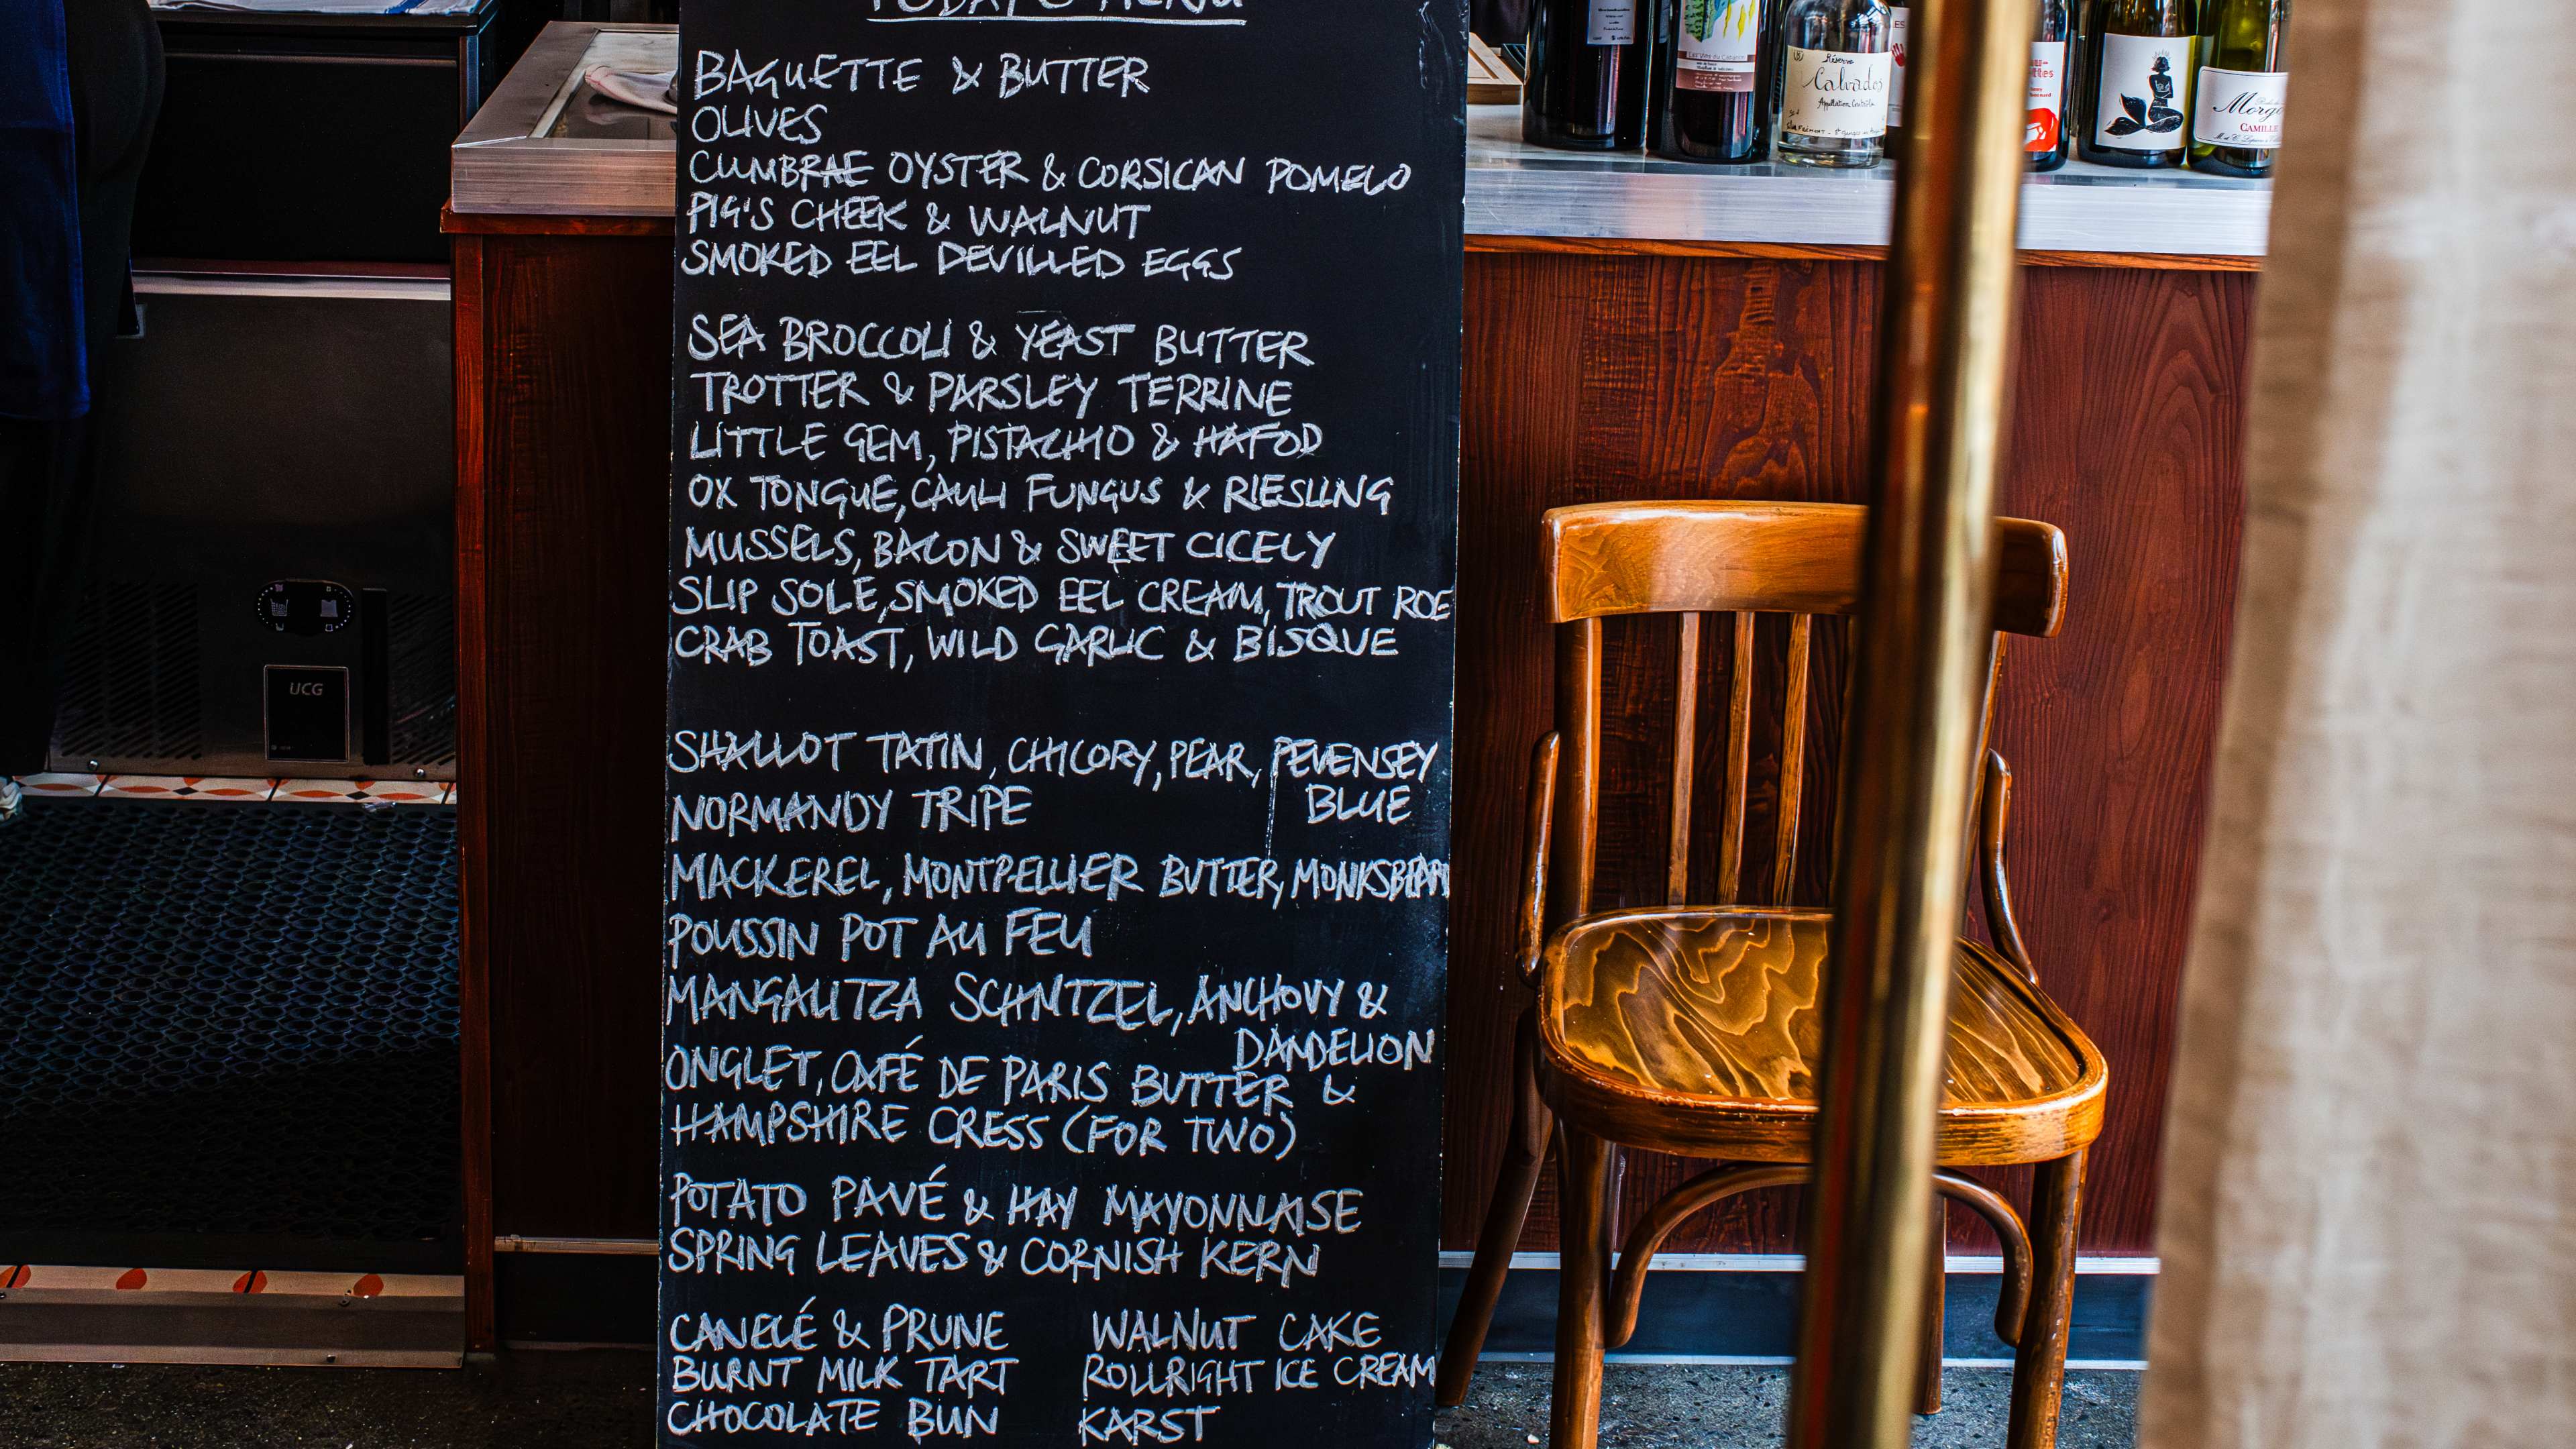 TODAY'S MENU
BAGUETTE & BUTTER
OLIVES
CUMBRAE OYSTER & CORSICAN POMELO
PIG'S CHEEK & WALNUT
SMOKED EEL DEVILLED EGGS
SEA BROCCOLI & YEAST BUTTER
TROTTER & PARSLEY TERRINE
LITTLE GEM, PISTACHIO & HAFOD
OX TONGUE, CAULI FUNGUS & RIESLING
MUSSELS, BACON & SWEET CICELY
SLIP SOLE, SMOKED EEL CREAM, TROUT ROE
CRAB TOAST, WILD GARLIC & BISQUE
SHALLOT TATIN, CHICORY, PEAR, PEVENSEY
BLUE
NORMANDY TRIPE
MACKEREL, MONTPELLIER BUTTER, MONKSBEARD
POUSSIN POT AU FEU
MANGALITZA SCHNITZEL, ANCHOVY &
DANDELION
ONGLET, CAFÉ DE PARIS BUTTER &
HAMPSHIRE CRESS (FOR TWO)
POTATO PAVÉ & HAY MAYONNAISE
SPRING LEAVES & CORNISH KERN
CANELÉ & PRUNE
BURNT MILK TART
CHOCOLATE BUN
WALNUT CAKE
ROLLRIGHT ICE CREAM
KARST
UCG
Réserve
Calvados
Morgo
CAMILLE